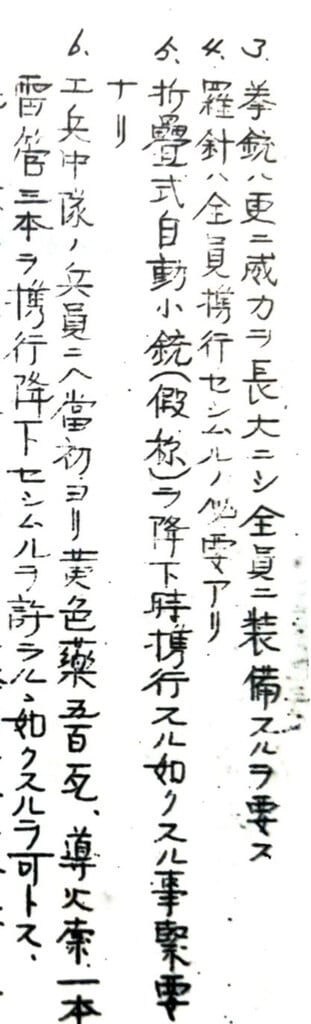 3. 拳銃ハ更ニ威力ヲ長大ニシ全員ニ装備スルヲ要ス
4. 羅針ハ全員携行セシムルノ必要アリ
5. 折疊式自動小銃(假称)ヲ降下時携行スル如クスル事緊要
ナリ
6. 工兵中隊ノ兵員ニハ當初ヨリ黄色藥五百瓦、導火索一本
雷管三本ヲ携行降下セシムルヲ許ラルヽ如クスルヲ可トス、